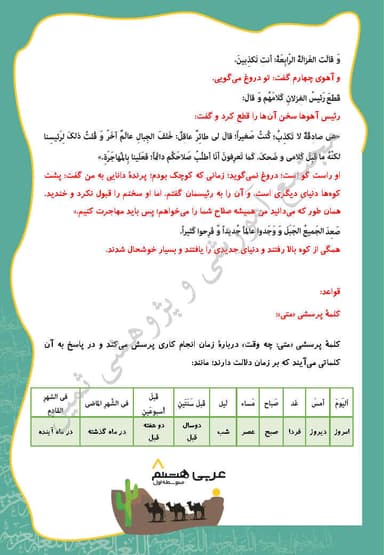 وَ قالَت الغَزالَةُ الرّابِعَةُ: أنت تَکذِبینَ.
و آهوی چهارم گفت: تو دروغ می‌گویی.
قَطَعَ رَئیسُ الغِزلانِ کَلامَهُم وَ قالَ:
رئیس آهوها سخن آن‌ها را قطع کرد و گفت:
«هیَ صادِقَةٌ لا تَکذِبُ؛ کُنتُ صَغیراً؛ قالَ لی طائِرٌ عاقِلٌ: خَلفَ الجِبالِ عالَمٌ آخَرُ وَ قُلتُ ذلکَ لِرَئیسِنا
لکنَّهُ ما قَبِلَ کَلامی وَ ضَحِکَ. کَما تَعرِفونَ أنَا أطلُبُ صَلاحَکُم دائماً؛ فَعَلَینا بِالمُهاجَرَةِ.»
او راست گو است؛ دروغ نمی‌گوید؛ زمانی که کوچک بودم؛ پرندهٔ دانایی به من گفت: پشت
کوه‌ها دنیای دیگری است. و آن را به رئیسمان گفتم. اما او سخنم را قبول نکرد و خندید.
همان طور که می‌دانید من همیشه صلاح شما را می‌خواهم؛ پس باید مهاجرت کنیم.
صَعِدَ الجَمیعُ الجَبَلَ وَ وَجَدوا عالَماً جَدیداً وَ فَرِحوا کَثیراً.
همگی از کوه بالا رفتند و دنیای جدیدی را یافتند و بسیار خوشحال شدند.
قواعد:
کلمهٔ پرسشی «متی»:
کلمهٔ پرسشی «متی: چه وقت» دربارهٔ زمان انجام کاری پرسش می‌کند و در پاسخ به آن
کلماتی می‌آیند که بر زمان دلالت دارند؛ مانند:
الیَومَ أمسِ غَد صَباح مَساء لَیل قَبلَ سَنَتَینِ قَبلَ أُسبوعَینِ فی الشَّهرِ الماضی فی الشَّهرِ القادِمِ
امروز دیروز فردا صبح عصر شب دوسال قبل دو هفته قبل در ماه گذشته در ماه آینده
عربی هستم
متوسطه اول